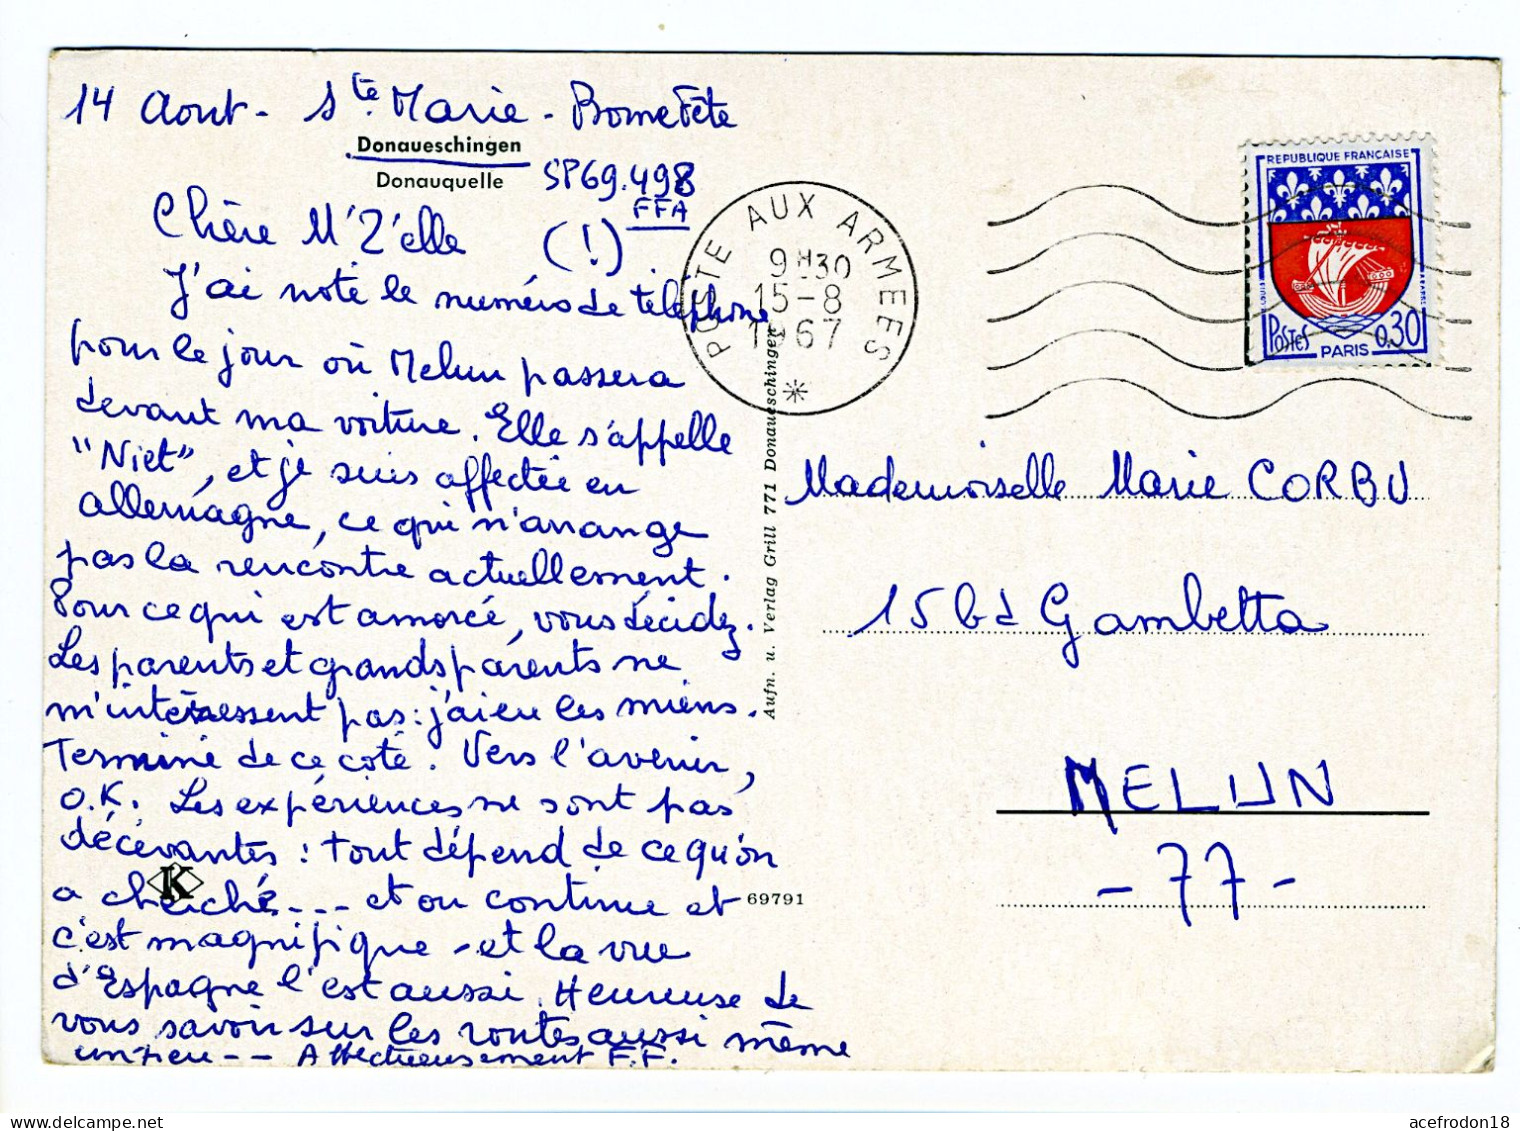 14 Aout - Ste Marie - Bonne Fête
Donaueschingen
Donauquelle
SP69.498
FFA
Chère M'Z'elle (!)
J'ai noté le numéro de téléphone
pour le jour où Melun passera
devant ma voiture. Elle s'appelle
"Niet", et je suis affectée en
allemagne, ce qui n'arrange
pas la rencontre actuellement.
Pour ce qui est amorcé, vous décidez.
Les parents et grands parents ne
m'intéressent pas : j'ai eu les miens.
Terminé de ce coté. Vers l'avenir,
O.K. Les expériences ne sont pas
décevantes : tout dépend de ce qu'on
a cherché --- et on continue et
c'est magnifique - et la vue
d'Espagne l'est aussi. Heureuse de
vous savoir sur les routes aussi même
un peu -- Affectueusement F.F.
K
69791
Aufn. u. Verlag Grill 771 Donaueschingen
POSTE AUX ARMEES
9H30
15-8
1967
REPUBLIQUE FRANÇAISE
POSTES
0,30
PARIS
Mademoiselle Marie CORBU
15 bd Gambetta
MELUN
- 77 -
acefrodon18